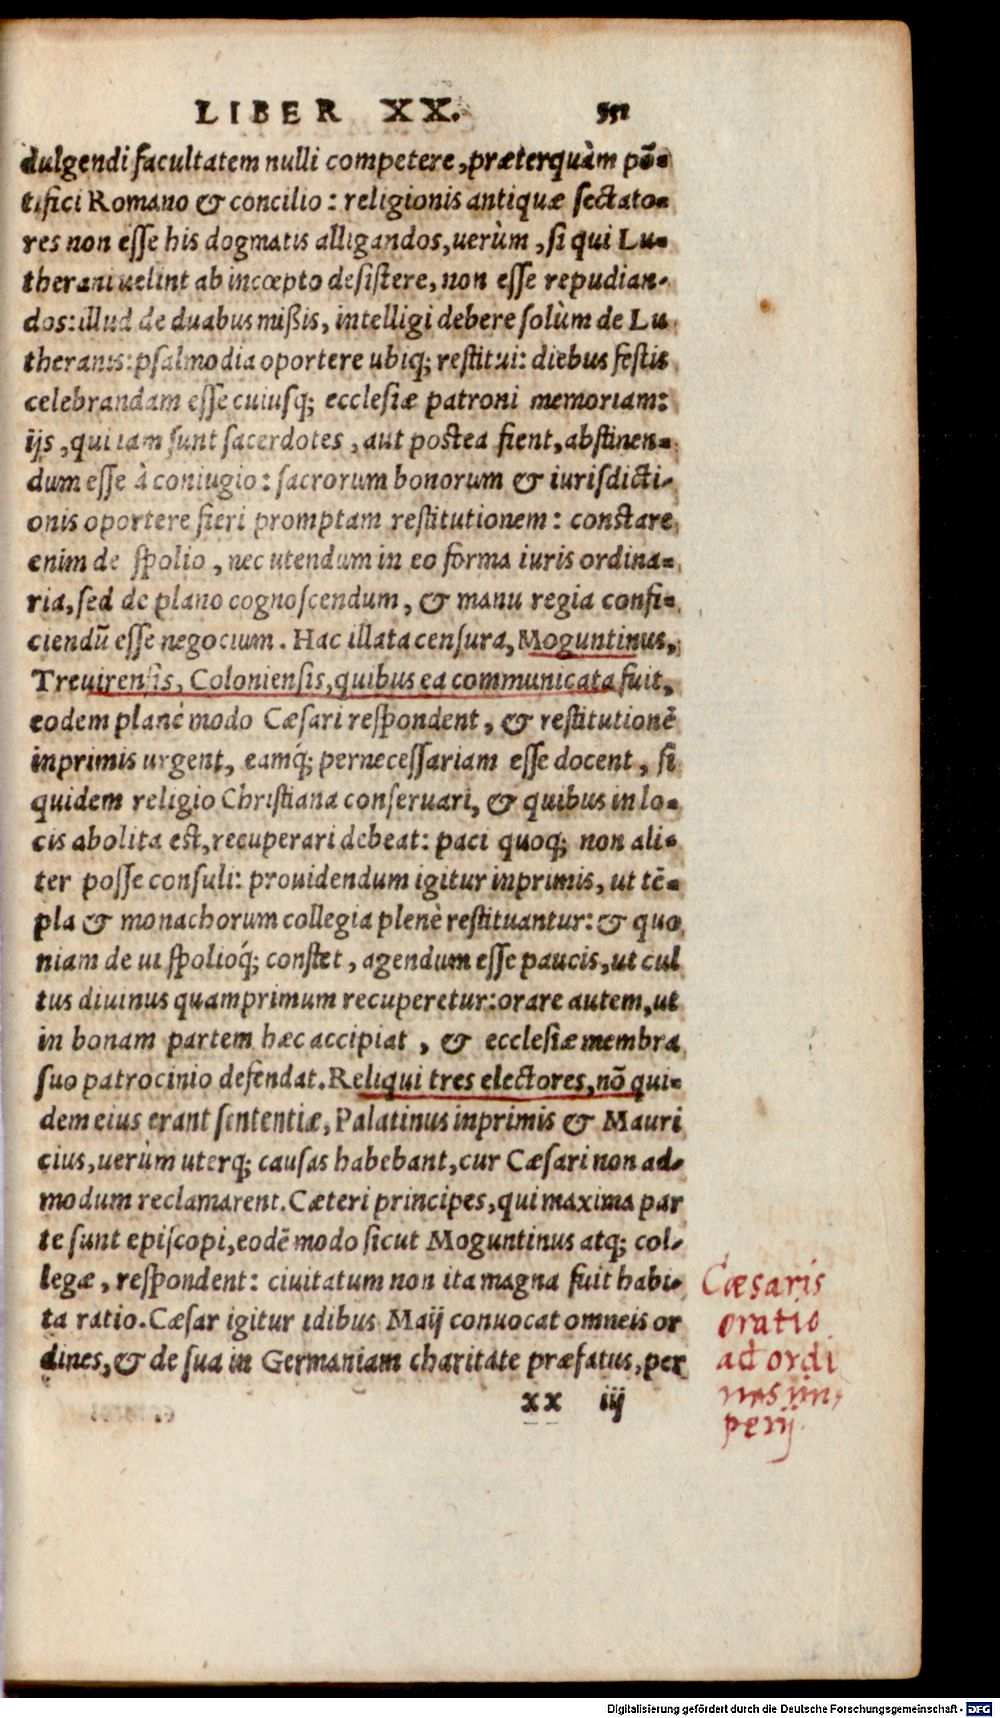 LIBER XX. 351
dulgendi facultatem nulli competere, præterquàm põ-
tifici Romano & concilio: religionis antiquæ sectato-
res non esse his dogmatis alligandos, uerùm, si qui Lu-
therani uelint ab incœpto desistere, non esse repudian-
dos: illud de duabus mißis, intelligi debere solùm de Lu
theranis: psalmodia oportere ubiq; restitui: diebus festis
celebrandam esse cuiusq; ecclesiæ patroni memoriam:
ijs, qui iam sunt sacerdotes, aut postea fient, abstinen-
dum esse à coniugio: sacrorum bonorum & iurisdicti-
onis oportere fieri promptam restitutionem: constare
enim de spolio, nec utendum in eo forma iuris ordina-
ria, sed de plano cognoscendum, & manu regia confi-
ciendũ esse negocium. Hac illata censura, Moguntinus,
Treuirensis, Coloniensis, quibus ea communicata fuit,
eodem planè modo Cæsari respondent, & restitutionẽ
inprimis urgent, eamq́; pernecessariam esse docent, si
quidem religio Christiana conseruari, & quibus in lo-
cis abolita est, recuperari debeat: paci quoq; non ali-
ter posse consuli: prouidendum igitur inprimis, ut tẽ-
pla & monachorum collegia plenè restituantur: & quo
niam de ui spolioq́; constet, agendum esse paucis, ut cul
tus diuinus quamprimum recuperetur: orare autem, ut
in bonam partem hæc accipiat, & ecclesiæ membra
suo patrocinio defendat. Reliqui tres electores, nõ qui-
dem eius erant sententiæ, Palatinus inprimis & Mauri
cius, uerùm uterq; causas habebant, cur Cæsari non ad-
modum reclamarent. Cæteri principes, qui maxima par
te sunt episcopi, eodẽ modo sicut Moguntinus atq; col-
legæ, respondent: ciuitatum non ita magna fuit habi-
ta ratio. Cæsar igitur idibus Maij conuocat omneis or
dines, & de sua in Germaniam charitate præfatus, per
xx iij
Cæsaris
oratio
ad ordi
nes im,
perij.
Digitalisierung gefördert durch die Deutsche Forschungsgemeinschaft - DFG